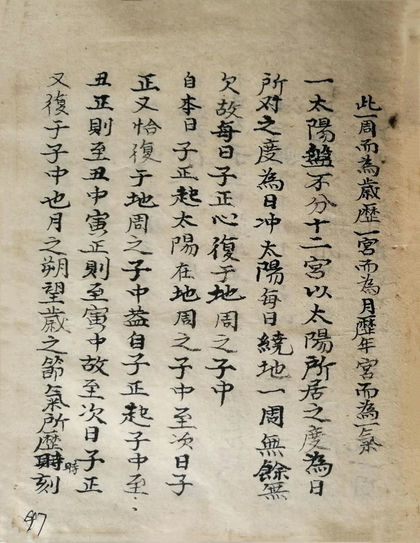 此一周而為歲歷一宮而為月歷年宮而為一氣
一太陽盤不分十二宮以太陽所居之度為日
所对之度為日冲太陽每日繞地一周無餘無
欠故每日子正必復于地周之子中
自本日子正起太陽在地周之子中至次日子
正又恰復于地周之子中益自子正起子中至
丑正則至丑中寅正則至寅中故至次日子正
又復于子中也月之朔望歲之節氣所歷時刻
時
47